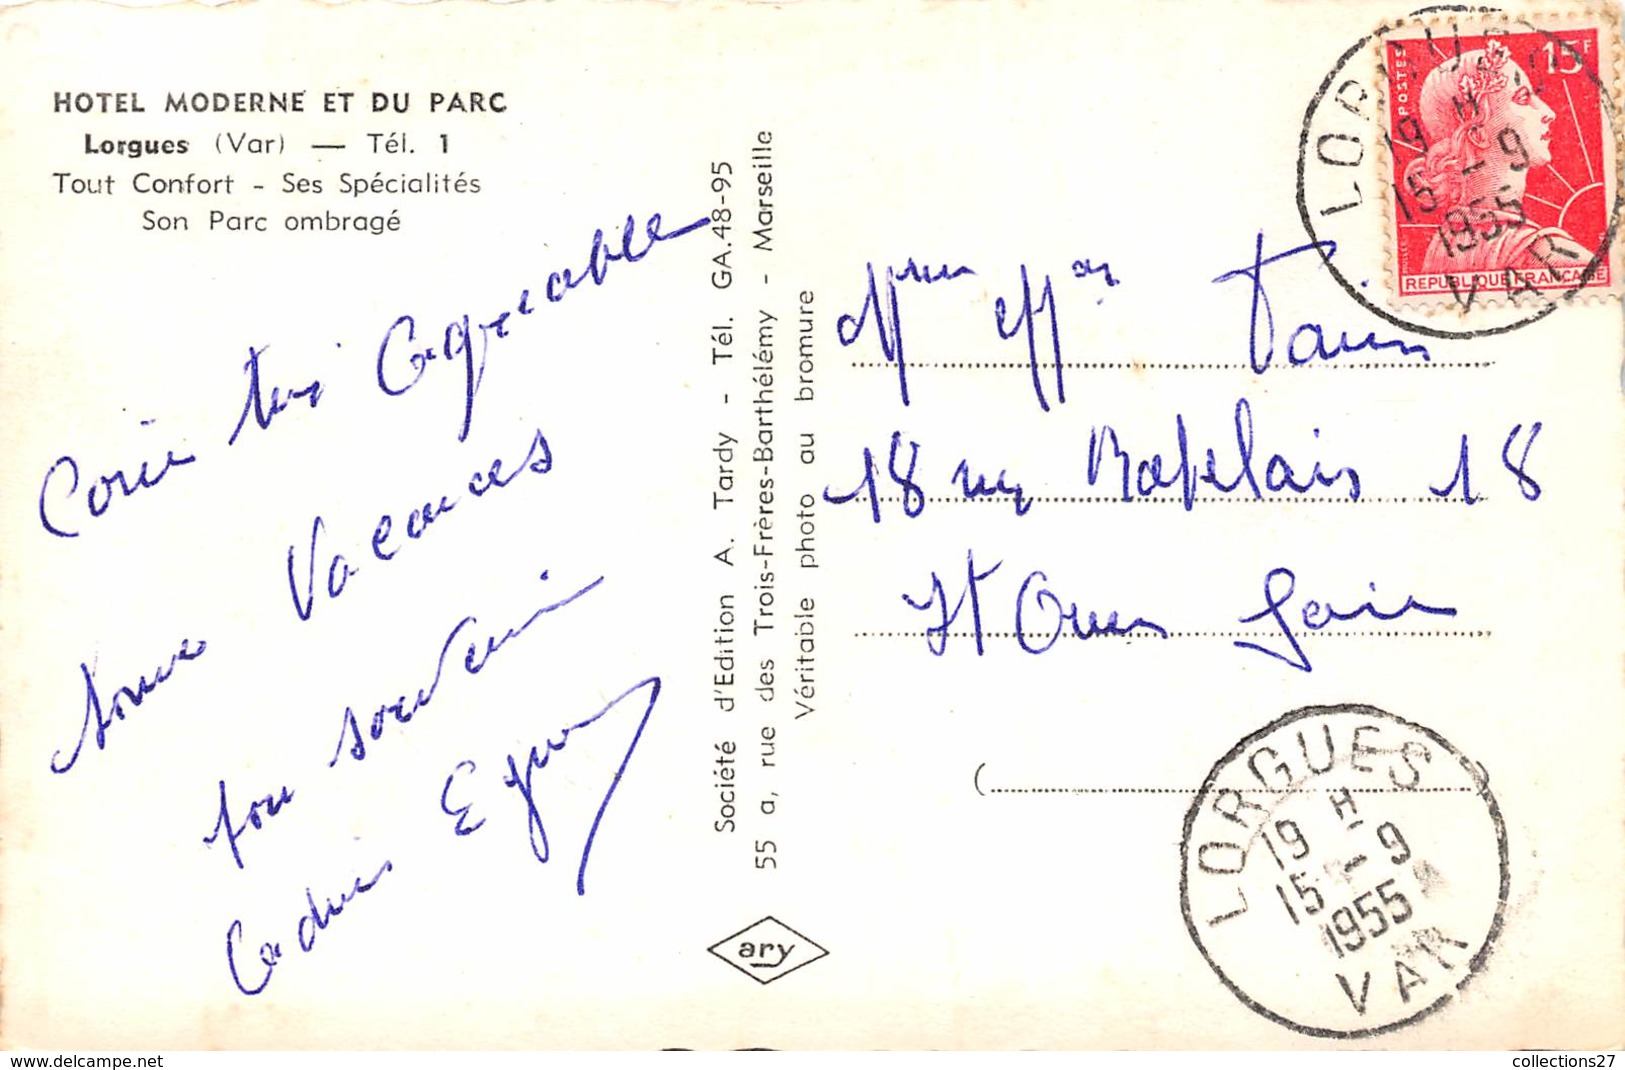 HOTEL MODERNE ET DU PARC
Lorgues (Var) — Tél. 1
Tout Confort - Ses Spécialités
Son Parc ombragé
agréable
Vacances
souvenir
Société d'Edition A. Tardy - Tél. GA.48-95
55 a, rue des Trois-Frères-Barthélémy - Marseille
Véritable photo au bromure
ary
POSTES
15F
REPUBLIQUE FRANÇAISE
LORGUES
19 H
15 - 9
1955
VAR
18 rue Rabelais 18
St Ouen Seine
(
LORGUES
19 H
15 - 9
1955
VAR
collections27